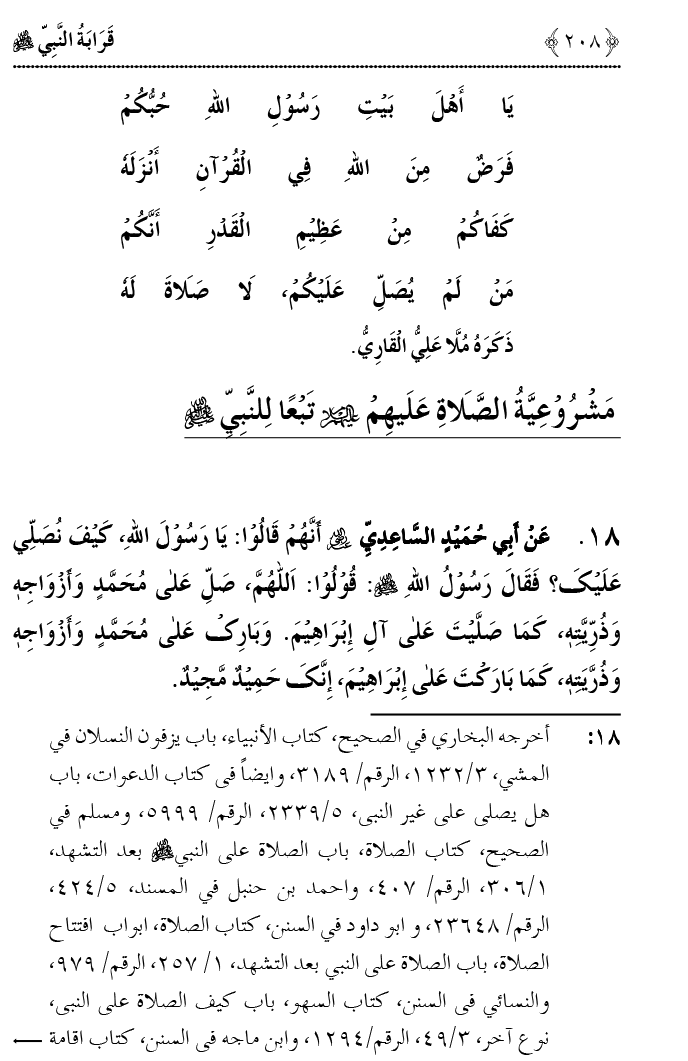 ﴿٢٠٨﴾ قَرَابَةُ النَّبِيِّ ﷺ
يَا أَهْلَ بَيْتِ رَسُوْلِ اللهِ حُبُّكُمْ
فَرَضٌ مِنَ اللهِ فِي الْقُرْآنِ أَنْزَلَهُ
كَفَاكُمْ مِنْ عَظِيْمِ الْقَدْرِ أَنَّكُمْ
مَنْ لَمْ يُصَلِّ عَلَيْكُمْ، لَا صَلَاةَ لَهُ
ذَكَرَهُ مُلَّا عَلِيُّ الْقَارِيُّ.
مَشْرُوْعِيَّةُ الصَّلَاةِ عَلَيهِمْ تَبْعًا لِلنَّبِيِّ ﷺ
١٨. عَنْ أَبِي حُمَيْدٍ السَّاعِدِيِّ أَنَّهُمْ قَالُوْا: يَا رَسُوْلَ اللهِ، كَيْفَ نُصَلِّي
عَلَيْکَ؟ فَقَالَ رَسُوْلُ اللهِ ﷺ: قُوْلُوْا: اَللّٰهُمَّ، صَلِّ عَلٰی مُحَمَّدٍ وَأَزْوَاجِهٖ
وَذُرِّيَّتِهٖ، كَمَا صَلَّيْتَ عَلٰی آلِ إِبْرَاهِيْمَ. وَبَارِکْ عَلٰی مُحَمَّدٍ وَأَزْوَاجِهٖ
وَذُرِّيَّتِهٖ، كَمَا بَارَكْتَ عَلٰی إِبْرَاهِيْمَ، إِنَّکَ حَمِيْدٌ مَّجِيْدٌ.
١٨: أخرجه البخاري في الصحيح، كتاب الأنبياء، باب يزفون النسلان في
المشي، ١٢٣٢/٣، الرقم/ ٣١٨٩، وايضاً فى كتاب الدعوات، باب
هل يصلى على غير النبى، ٢٣٣٩/٥، الرقم/ ٥٩٩٩، ومسلم في
الصحيح، كتاب الصلاة، باب الصلاة على النبي ﷺ بعد التشهد،
٣٠٦/١، الرقم/ ٤٠٧، واحمد بن حنبل في المسند، ٤٢٤/٥،
الرقم/ ٢٣٦٤٨، و ابو داود في السنن، كتاب الصلاة، ابواب افتتاح
الصلاة، باب الصلاة على النبي بعد التشهد، ١/ ٢٥٧، الرقم/ ٩٧٩،
والنسائي فى السنن، كتاب السهو، باب كيف الصلاة على النبى،
نوع آخر، ٤٩/٣، الرقم/١٢٩٤، وابن ماجه فى السنن، كتاب اقامة ←